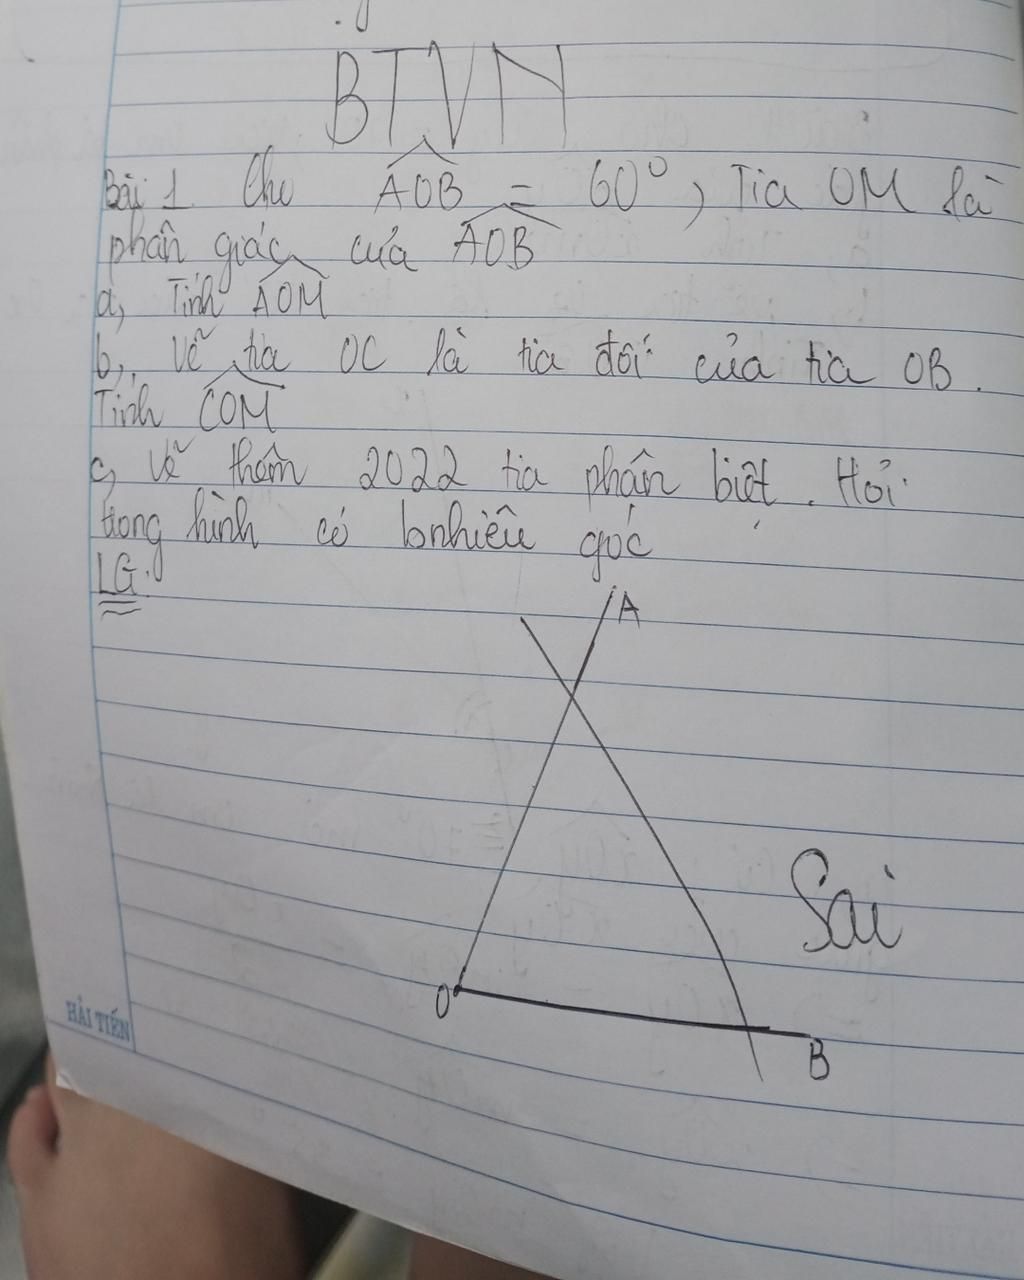 BTVN
Bài 1. Cho AOB = 60°, Tia OM là
phân giác của AOB
a, Tính AOM
b, Vẽ tia OC là tia đối của tia OB.
Tính COM
c, Vẽ thêm 2022 tia phân biệt. Hỏi
trong hình có bnhiêu góc
LG:
A
Sai
O
B
HẢI TIẾN